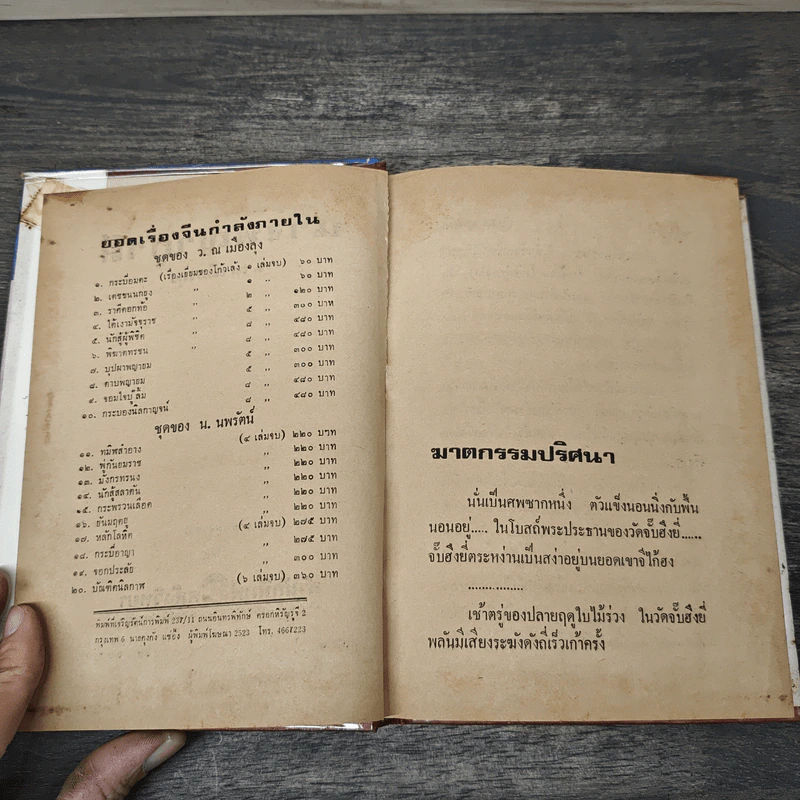 ยอดเรื่องจีนกำลังภายใน
ชุดของ ว. ณ เมืองลุง
๑. กระบี่อมตะ (เรื่องเยี่ยมของโก้วเล้ง ๑ เล่มจบ) ๖๐ บาท
๒. เดชขนนกยูง ,, ๑ ,, ๖๐ บาท
๓. ราศีดอกท้อ ,, ๒ ,, ๑๒๐ บาท
๔. ไต้เงามัจจุราช ,, ๕ ,, ๓๐๐ บาท
๕. นักสู้ผู้พิชิต ,, ๘ ,, ๔๘๐ บาท
๖. พิฆาตทรชน ,, ๘ ,, ๔๘๐ บาท
๗. บุปผาพญายม ๕ ,, ๓๐๐ บาท
๘. ดาบพญายม ๕ ,, ๓๐๐ บาท
๙. จอมใจบู๊ลิ้ม ๘ ,, ๔๘๐ บาท
๑๐. กระบองนิลกาญจน์ ๘ ,, ๔๘๐ บาท
ชุดของ น. นพรัตน์
๑๑. ทมิฬสำอาง (๔ เล่มจบ) ๒๒๐ บาท
๑๒. พู่กันยมราช ,, ๒๒๐ บาท
๑๓. มังกรทรนง ,, ๒๒๐ บาท
๑๔. นักสู้สลาตัน ,, ๒๒๐ บาท
๑๕. กระพรวนเลือด ,, ๒๒๐ บาท
๑๖. ยันมฤตยู (๔ เล่มจบ) ๒๗๕ บาท
๑๗. หลักโลหิต ,, ๒๗๕ บาท
๑๘. กระบี่อาญา ,, ๓๐๐ บาท
๑๙. จอกประลัย
๒๐. บัณฑิตนิลกาฬ (๖ เล่มจบ) ๓๖๐ บาท
พิมพ์ที่เจริญรัตน์การพิมพ์ 237/11 ถนนอินทรพิทักษ์ ตรอกหิรัญรูจี 2
กรุงเทพ 6 นายคุงกัง แซ่อึ้ง ผู้พิมพ์โฆษณา 2523 โทร. 4667223
ฆาตกรรมปริศนา
นั่นเป็นศพซากหนึ่ง ตัวแข็งนอนนิ่งกับพื้น
นอนอยู่..... ในโบสถ์พระประธานของวัดจั๊บฮึงยี่......
จั๊บฮึงยี่ตระหง่านเป็นสง่าอยู่บนยอดเขาจีไก้ฮง
................
เช้าตรู่ของปลายฤดูใบไม้ร่วง ในวัดจั๊บฮึงยี่
พลันมีเสียงระฆังดังถี่เร็วเก้าครั้ง